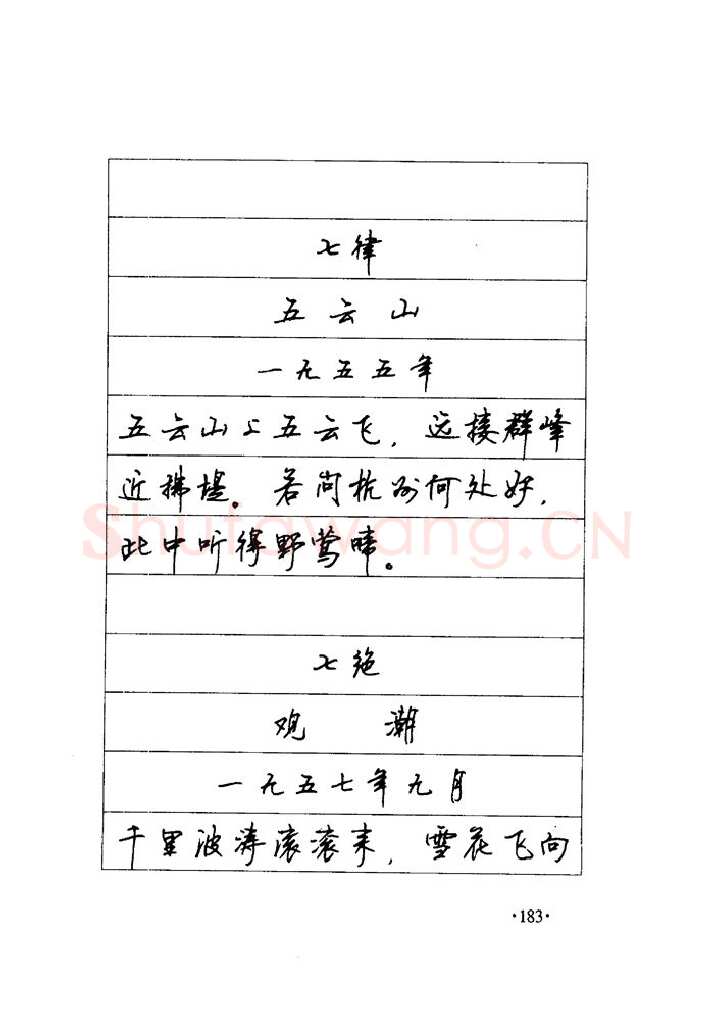 七律
五云山
一九五五年
五云山上五云飞，远接群峰
近拂堤。若问杭州何处好，
此中听得野莺啼。
ShufaWang.CN
七绝
观 潮
一九五七年九月
千里波涛滚滚来，雪花飞向
·183·